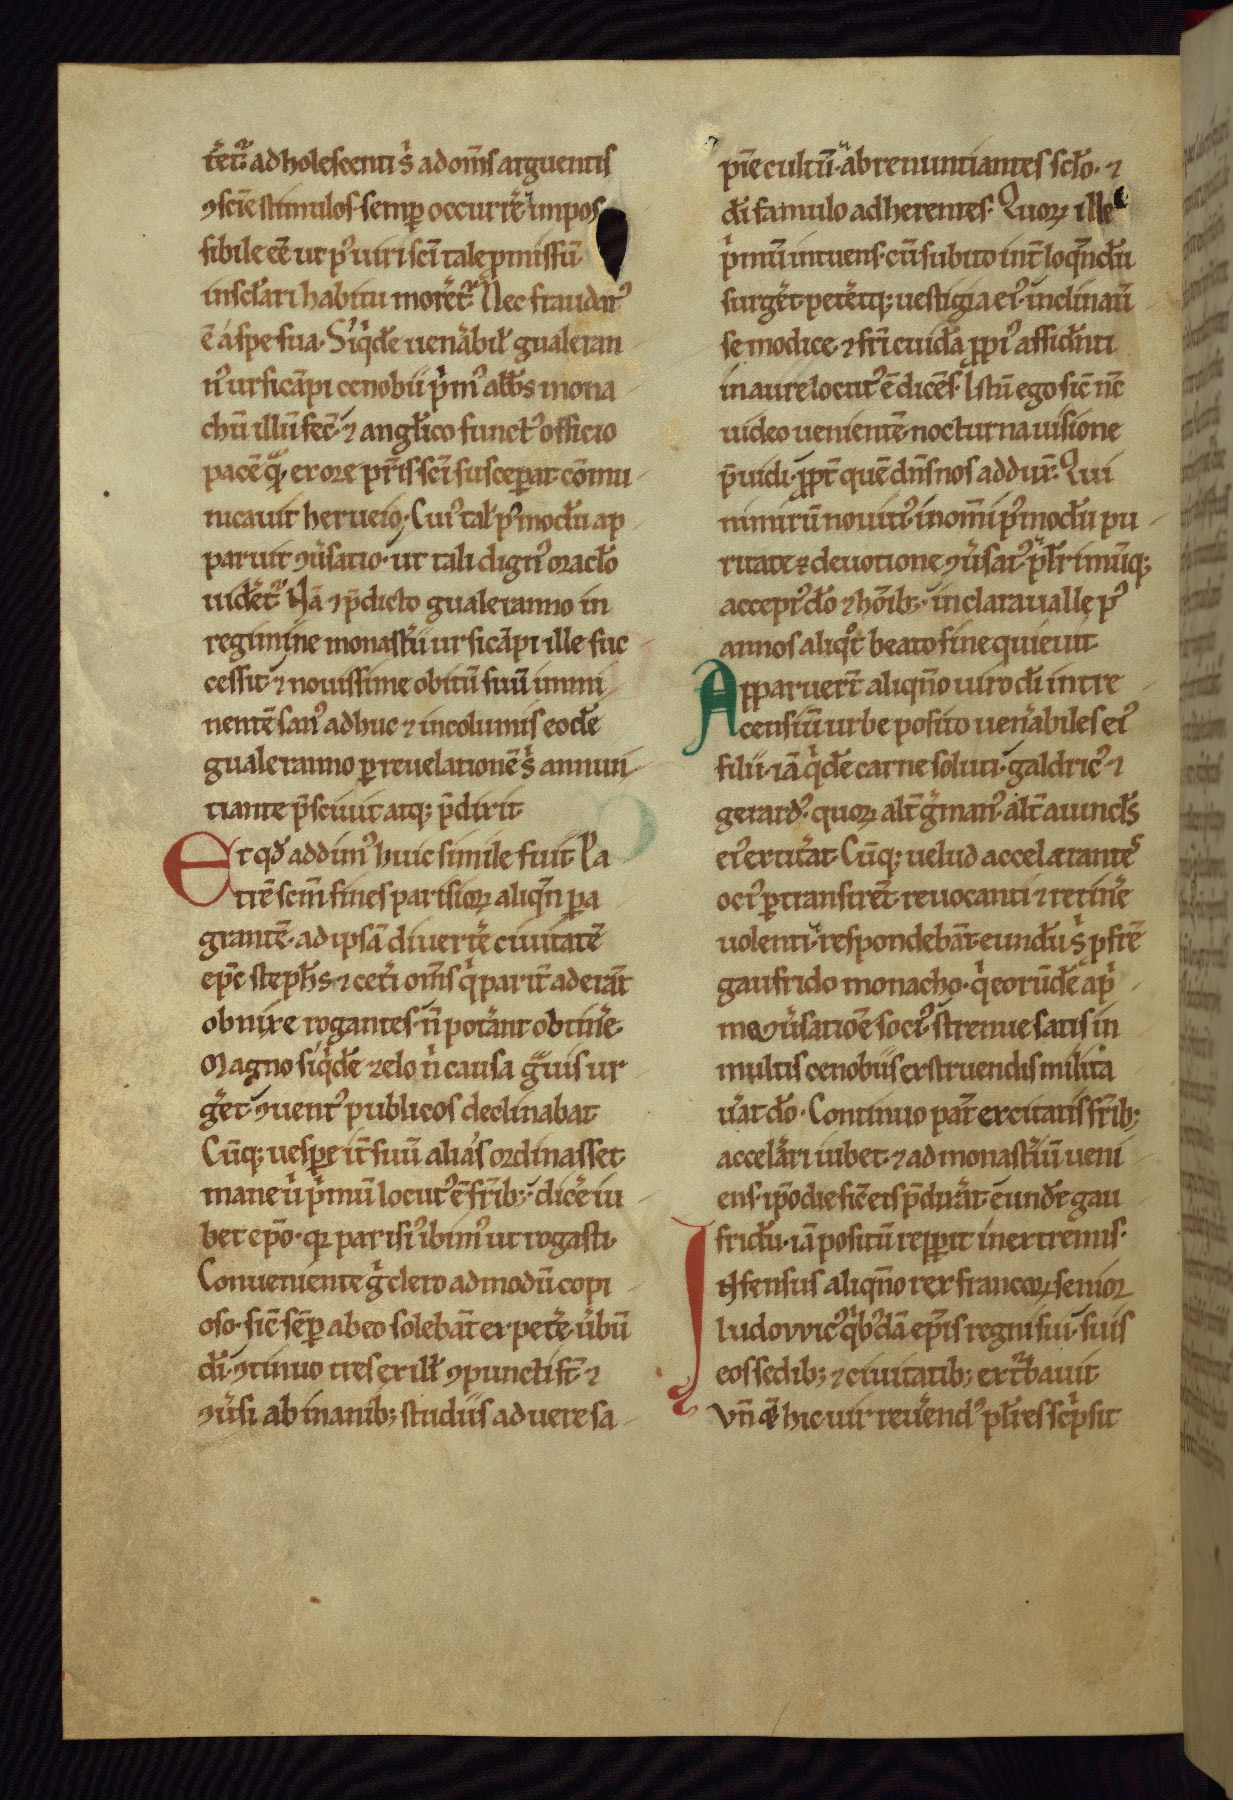 tr̄et᷑. adholescenti s᷒ ad om̄s arguentis
ꝯsciē stimulos. semꝑ occurrēt impos
sibile eē ut pꝰ uiri sc̄i tale ꝓmissū.
in scl̄ari habitu moret᷑. Nec fraudatꝰ
ē a spe sua. Siqͥdē uenabil̄ gualeran
nꝰ ursicāpi cenobii pͥmꝰ abb̄s mona
chū illū fec̄. ⁊ angl̄ico functꝰ officio
pacē qͣ. ex ore pr̄is sc̄i susceꝑat. cōmu
nicauit herueio. Cuiꝰ tal̄ pꝰmodū ap
paruit ꝯuͥsatio. ut tali dignꝰ oraclo
uidet᷑. Nā ⁊ p̄dicto gualeranno in
regimine monast̄ii ursicāpi ille suc
cessit. ⁊ nouissime obitū suū immi
nentē sanꝰ adhuc ⁊ incolumis eodē
gualeranno ꝑ reuelationē s᷒ annun
tiante p̄sciuit atq; p̄dixit.
Et qd̄ addimꝰ huic simile fuit. Pa
trē scm̄ fines parisioꝝ aliqn̄ ꝑa
grantē. ad ipsā diuertē ciuitatē
ep̄c steph̄s. ⁊ cet̄i om̄s qͥ parit̄ aderāt
obnixe rogantes. n̄ poterant obtinē.
Magno siqͥdē zelo n̄ causa gͣuis ur
get. ꝯuentꝰ publicos declinabat.
Cūq; uesꝑe it̄ suū alias ordinasset.
mane u̾ pͥmū locutꝰ ē fr̄ib;. dicē iu
bet ep̄o. qꝫ parisiꝰ ibimꝰ ut rogasti.
Conueniente gͦ clero admodū copi
oso. sic sēꝑ ab eo solebāt expetē u̾bū
dī. ꝯtinuo tres exill̄ ꝯpuncti st̄. ⁊
ꝯuͥsi ab inanib; studiis ad uere sa
piē cultū. abrenuntiantes scl̄o. ⁊
dī famulo adherentes. Quoꝝ ille
pͥmū intuens. cū subito int̄ loqn̄dū
surget. peteretq; uestigia eiꝰ. inclinauͥ
se modice. ⁊ fr̄i cuidā ꝓpiꝰ assidenti
in aure locutꝰ ē dicēs. Istū ego sic nc̄
uideo uenientē. nocturna uisione
p̄uidi. ꝓpt̄ quē dn̄s nos addux̄. Qui
nimirū nouitiꝰ in om̄i pꝰmodū pu
ritate ⁊ deuotione ꝯuͥsatꝰ. pl̄rimūq;
acceptꝰ dō ⁊ hōib;. in claraualle pꝰ
annos aliqͦt beato fine quieuit.
Apparuert̄ aliqn̄o uiro dī in tre
censiū urbe posito uenabiles eiꝰ
filii. iā qͥdē carne soluti. galdricꝰ ⁊
gerardꝰ. quoꝝ alt̄ gͥmanꝰ. alt̄ auuncl̄s
eiꝰ extit̄at. Cūq; uelud accelerantes
ociꝰ ꝑtransirent. reuocanti ⁊ retinē
uolenti. respondebāt. eundū s᷒ ꝑ fr̄e
gaufrido monacho. qͥ eorūdē a pͥ
ma ꝯuͥsatiōe sociꝰ. strenue satis in
multis cenobiis exstruendis milita
u̾at dō. Continuo pat̄ excitatis fr̄ib;
accelarari iubet. ⁊ ad monast̄iū ueni
ens. ipō die sic eis p̄dixer̄at. eundē gau
fridū. iā positū repꝑit in extremis.
Infensus aliqn̄o rex francoꝝ senior
ludovvicꝰ qͥbꝰdā ep̄is regni sui. suis
eos sedib; ⁊ ciuitatib; ext᷑bauit.
Vn̄ ⁊ hic uir reuerendꝰ pl̄res scͥpsit